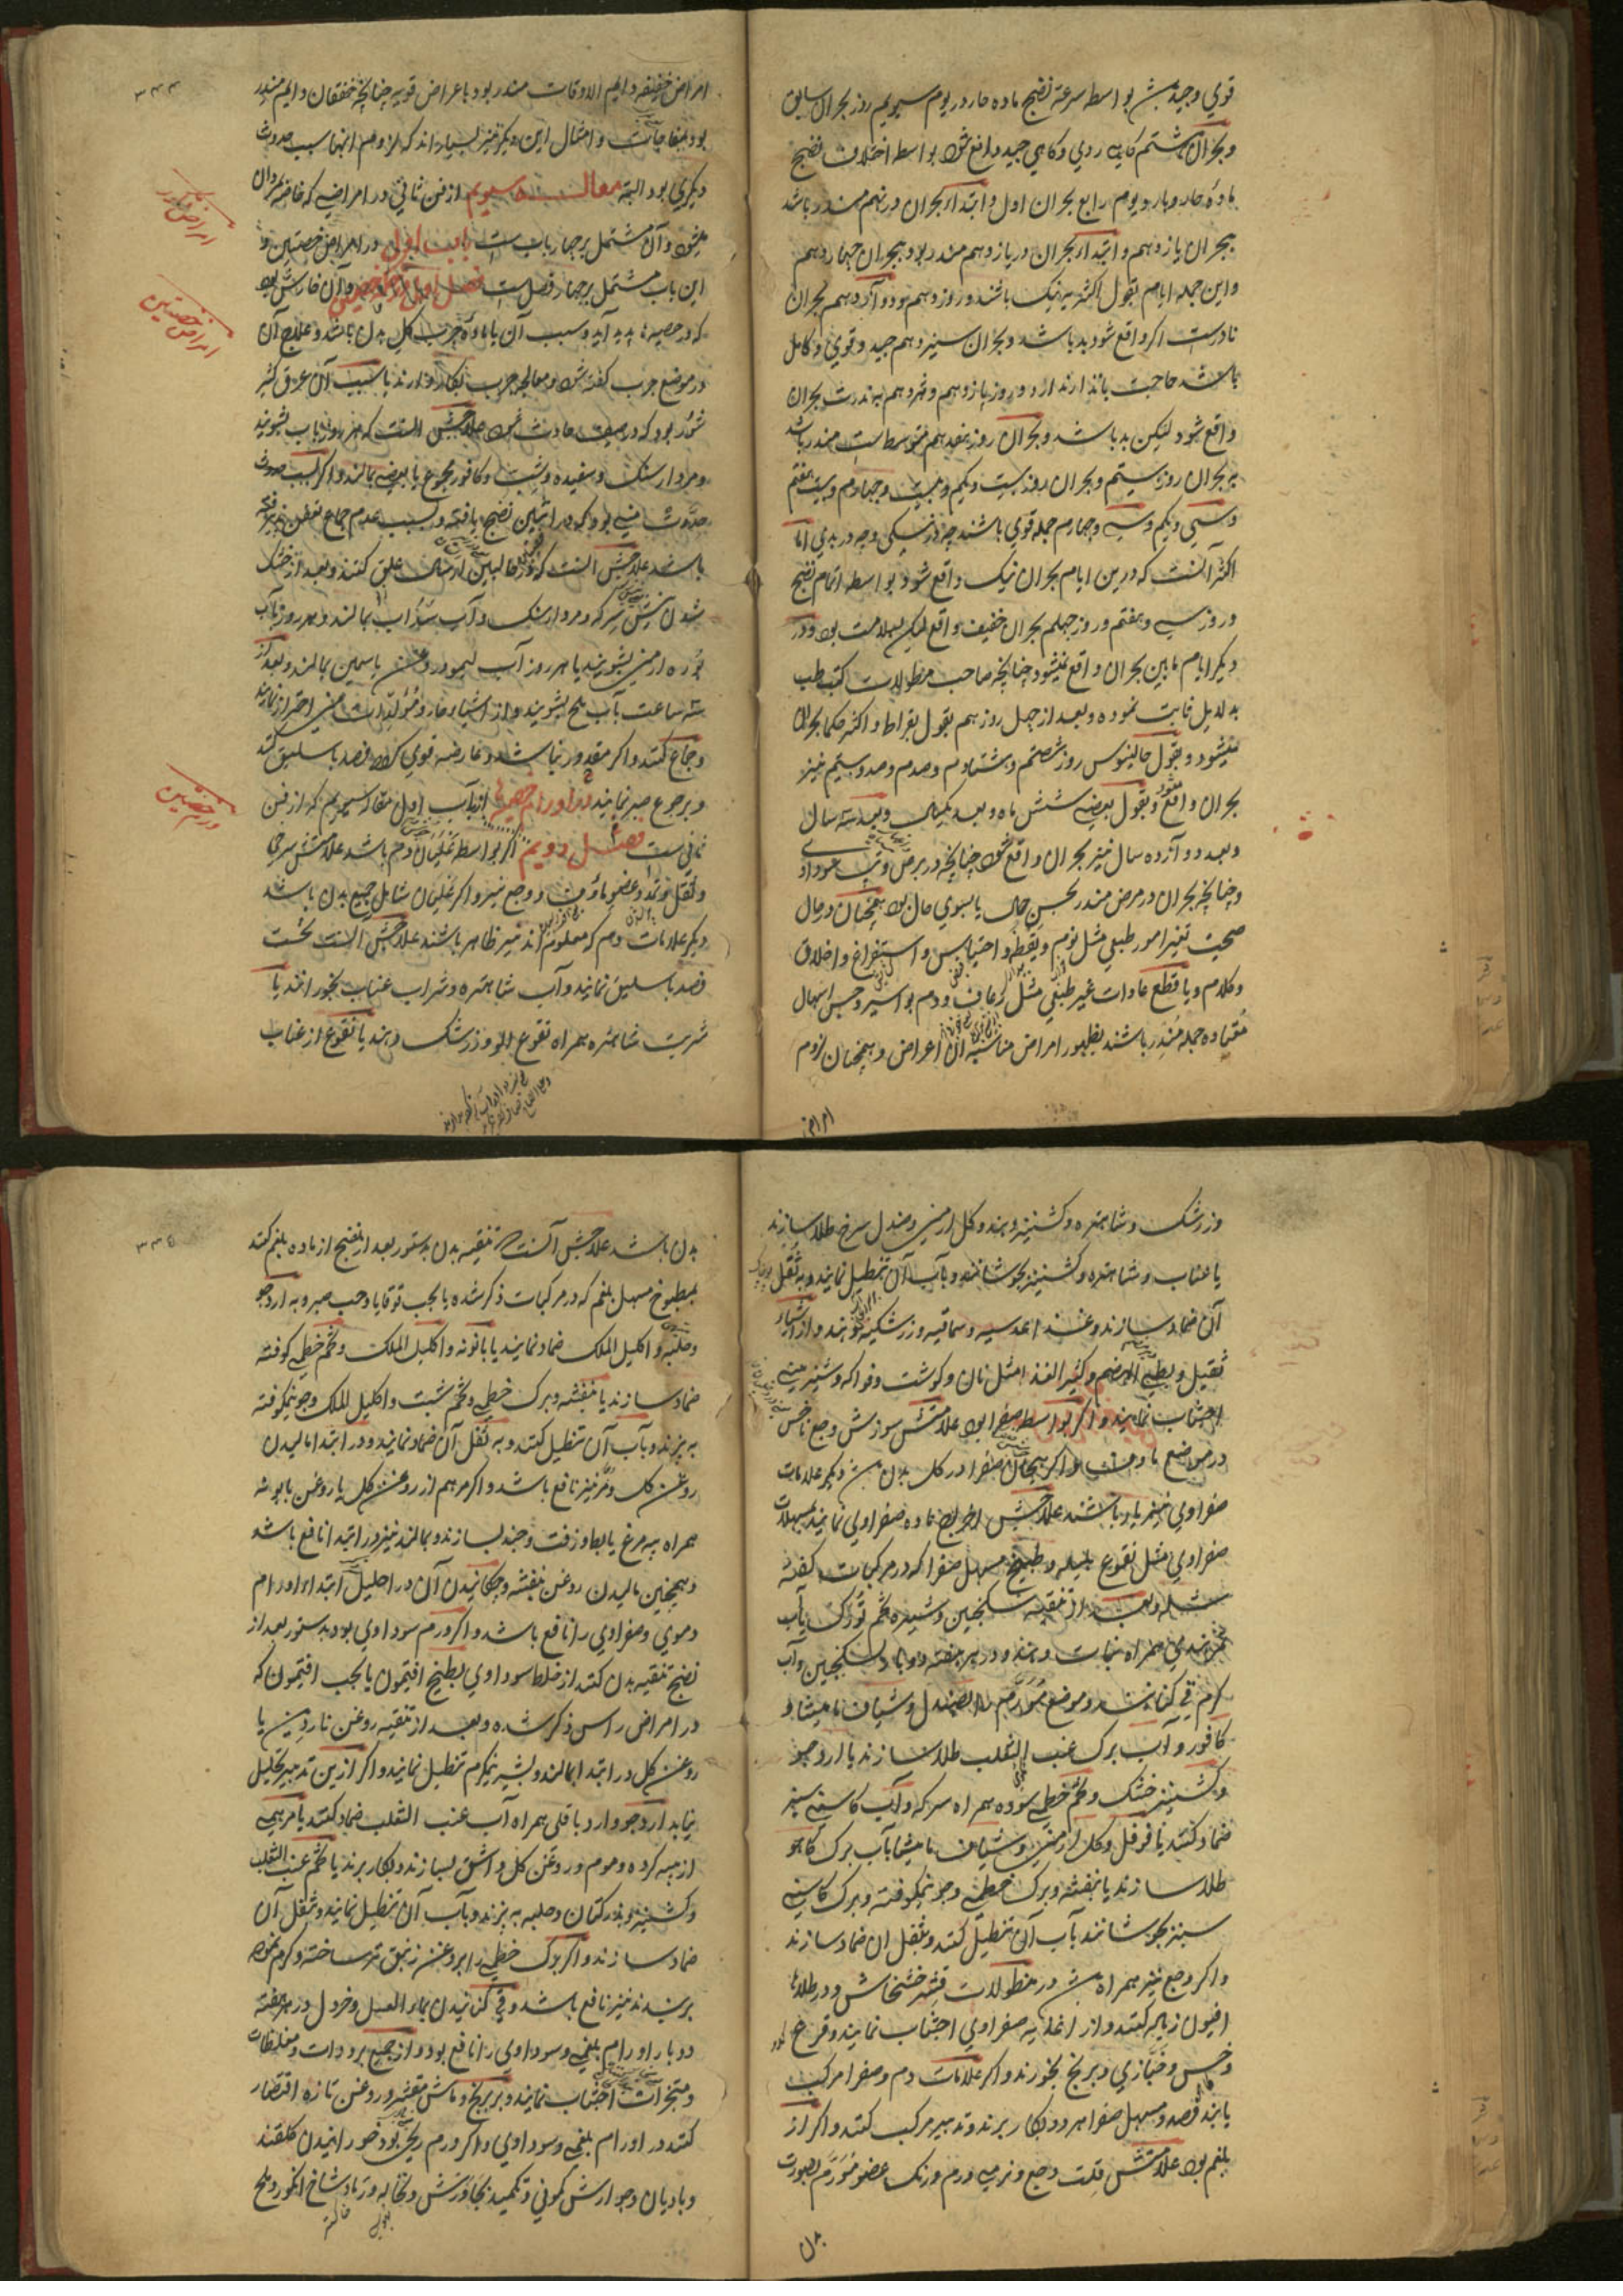 قوي وجيد بواسطه سرعة نضج ماده حار در يوم سيويم روز بحران سابق
و بحران هشتم كاهي ردي و كاهي جيد واقع شود بواسطه اختلاف نضج
ماده حار و بارد و يوم رابع بحران اول و ابتداء بحران در نهم منذر باشد
ببحران يازدهم و ابتداء بحران در يازدهم منذر بود ببحران چهاردهم
و اين جمله ايام بقول اكثر نيك باشند و روز دهم و دوازدهم بحران
نادرست اكر واقع شود بد باشد و بحران سيزدهم جيد و قوي و كامل
باشد حاجت بانذار ندارد و روز پانزدهم و نوزدهم بندرت بحران
واقع شود ليكن بد باشد و بحران روز هفدهم متوسط است منذر باشد
بر بحران روز بيستم و بحران روز بيست و يكم و بيست و چهارم و بيست هفتم
و سي و يكم و سي و چهارم جمله قوي باشند چه در نيكي و چه در بدي اما
اكثر آنست كه درين ايام بحران نيك واقع شود بواسطه اتمام نضج
و روز سي و هفتم و روز چهلم بحران خفيف واقع ليكن بسلامت بود و در
ديكر ايام مابين بحران واقع نميشود چنانچه صاحب مطولات كتب طب
بدلايل ثابت نموده و بعد از چهل روز هم بقول بقراط و اكثر حكما بحران
نميشود و بقول جالينوس روز شصتم و هشتادم و صدم و صد و بيستم نيز
بحران واقع و بقول بعضي شش ماه و بعد يكسال و بعد سه سال
و بعد دوازده سال نيز بحران واقع شود چنانچه در برص و تب
و چنانچه بحران در مرض منذر بحسن حال يا بسوي حال بود همچنان در حال
صحت تغير امور طبعي مثل نوم و يقظه و احتباس و استفراغ و اخلاق
و كلام و يا قطع عادات غير طبعي مثل رعاف و دم بواسير و حبس اسهال
معتاده جمله منذر باشند بظهور امراض مناسبه آن اعراض و همچنان لزوم
امراض
امراض خفيفه دايم الاوقات منذر بود باعراض قويه چنانچه خفقان دايم منذر
بود بمفاجات و امثال اين ديكر نيز بسيارند كه لزوم انها سبب حدوث
ديكري بود البته مقاله سيويم از فن ثاني در امراضي كه خاصه مردان
ميشود و آن مشتمل بر چهار باب است باب اول در امراض خصيتين و
اين باب مشتمل بر چهار فصل است فصل اول و آن خارش بود
كه در خصيه ها پديد آيد و سبب آن يا ماده جرب كل بدن باشد و علاج آن
در موضع جرب كفته شود و معالجه جرب بكار دارند يا سبب آن عرق كثير
شور بود كه در صيف حادث شود علاجش آنست كه هر روز بآب بشويند
و مردارسنك و سفيده و شبت و كافور مجموع يا بعضي بمالند و اكر بسبب حدوث
باشد علاجش آنست كه در قالبين ارسال علق كنند و بعد از خشك
شدن نيش سركه و مردارسنك و آب سداب بمالند و هر روز بآب
بوره ارمني بشويند يا هر روز آب ليمو و روغن ياسمين بمالند و بعد از
سه ساعت بآب يخ بشويند و از اشياء حاره و مولدات مني احتراز نمايند
و جماع كنند و اكر مقدور نباشد و عارضه قوي كردد فصد باسليق كنند
و برجوع صبر نمايند در اورام خصيه ها از باب اول مقاله سيويم كه از فن
ثاني ست فصل دويم اكر بواسطه غليان دم باشد علامتش سرخي
و ثقل و تمدد عضو ماوف و وجع نيز و اكر غليان شامل جميع بدن باشد
ديكر علامات دم كه معلوم اند نيز ظاهر باشند علاجش آنست نخست
فصد باسليق نمايند و آب شاهتره و شراب عناب بخورانند يا
شربت شاهتره همراه نقوع الو و زرشك دهند يا نقوع از عناب
امراض ذكور
امراض خصيتين
ورم خصيتين
۳۳۴
و زرشك و شاهتره و كشنيز دهند و كل ارمني و صندل سرخ طلا سازند
يا عناب و شاهتره و كشنيز بجوشانند و بآب آن تنطيل نمايند و به ثقل
آن ضماد سازند و غذا عدسيه و سماقيه و زرشكيه دهند و از اشياء
ثقيل و بطئي الهضم و كثير الغذا مثل نان و كوشت و فواكه و شيريني
اجتناب نمايند و اكر بواسطه صفرا بود علامتش سوزش و وجع ناخس
در موضع ماوف و اكر هيجان صفرا در كل بدن ديكر علامات
صفراوي نيز يار باشند علاجش اخراج ماده صفراوي نمايند بمسهلات
صفراوي مثل نقوع هليله و طبيخ مسهل صفرا كه در مركبات كفته
شده و بعد از تنقيه سكنجبين و شيره تخم تورك يا آب
تمرهندي همراه نبات دهند و در هر هفته دو بار بسكنجبين و آب
كرم قي كنانند و موضع مورم را بصندل و شياف ماميثا و
كافور و آب برك عنب الثعلب طلا سازند يا ارد جو
و كشنيز خشك و تخم خطمي سوده همراه سركه و آب كاسني سبز
ضماد كنند يا فوفل و كل ارمني و شياف ماميثا بآب برك كاهو
طلا سازند يا بنفشه و برك خطمي و جو نيمكوفته و برك كاسني
سبز بجوشانند بآب آن تنطيل كنند و بثقل ان ضماد سازند
و اكر وجع نيز همراه در نطولات قشر خشخاش و در طلاها
افيون زياده كنند و از اغذيه صفراوي اجتناب نمايند و قرع
و خس و خبازي و برنج بخورند و اكر علامات دم و صفرا مركب
يابند فصد و مسهل صفرا هر دو بكار برند و تدبير مركب كنند و اكر از
بلغم بود علامتش قلت وجع و نرمي ورم و رنك عضو مورم بصورت
بدن
بدن باشد علاجش آنست تنقيه بدن بدستور بعد از نضج از ماده بلغم كنند
بمطبوخ مسهل بلغم كه در مركبات ذكر شده يا بحب قوقايا و حب صبر و به ارد جو
و حلبه و اكليل الملك ضماد نمايند يا بابونه و اكليل الملك و تخم خطمي كوفته
ضماد سازند يا بنفشه و برك خطمي و تخم شبت و اكليل الملك و جو نيمكوفته
به پزند و بآب آن تنطيل كنند و به ثفل آن ضماد نمايند و در ابتدا ماليدن
روغن كل و مر نيز نافع باشد و اكر مرهم از روغن كل يا روغن بابونه
همراه پيه مرغ يا بط و زفت و جند بسازند و بمالند نيز در ابتدا نافع باشد
و همچنين ماليدن روغن بنفشه و چكانيدن آن در احليل ابتداء اورام
دموي و صفراوي را نافع باشد و اكر ورم سوداوي بود بدستور بعد از
نضج تنقيه بدن كنند از خلط سوداوي بطبيخ افتيمون يا بحب افتيمون كه
در امراض راس ذكر شده و بعد از تنقيه روغن ناردين يا
روغن كل در ابتدا بمالند و بشير نيمكرم تنطيل نمايند و اكر ازين تدبير تحليل
نيابد ارد جو و ارد باقلي همراه آب عنب الثعلب ضماد كنند يا مرهمي
از پيه كرده و موم و روغن كل و اشق بسازند و بكار برند يا تخم عنب الثعلب
و كشنيز و بذر كتان و حلبه به پزند و بآب آن تنطيل نمايند و بثفل آن
ضماد سازند و اكر برك خطمي را بروغن زنبق تر ساخته و كرم نموده
برنهند نيز نافع باشد و قي كنانيدن بماء العسل و خردل در هر هفته
دو بار اورام بلغمي و سوداوي را نافع بود و از جميع برودات و مغلظات
و مبخرات اجتناب نمايند و بر برنج و ماش مقشر و روغن تازه اقتصار
كنند در اورام بلغمي و سوداوي و اكر ورم ريحي بود خورانيدن كلقند
و باديان و جوارش كموني و تكميد بجاورش و نخاله و رماد شاخ انكور و ملح
۳۳۵